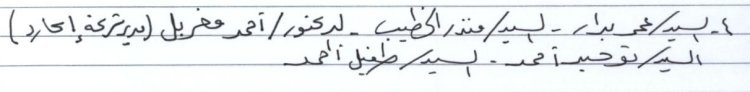 ٤- السيد/عمر بدار - السيد/منذر الخطيب - لدكتور/أحمد مغربل (مدير شركة إ
السيد/توحيد أحمد - السيد/طفيل أحمد